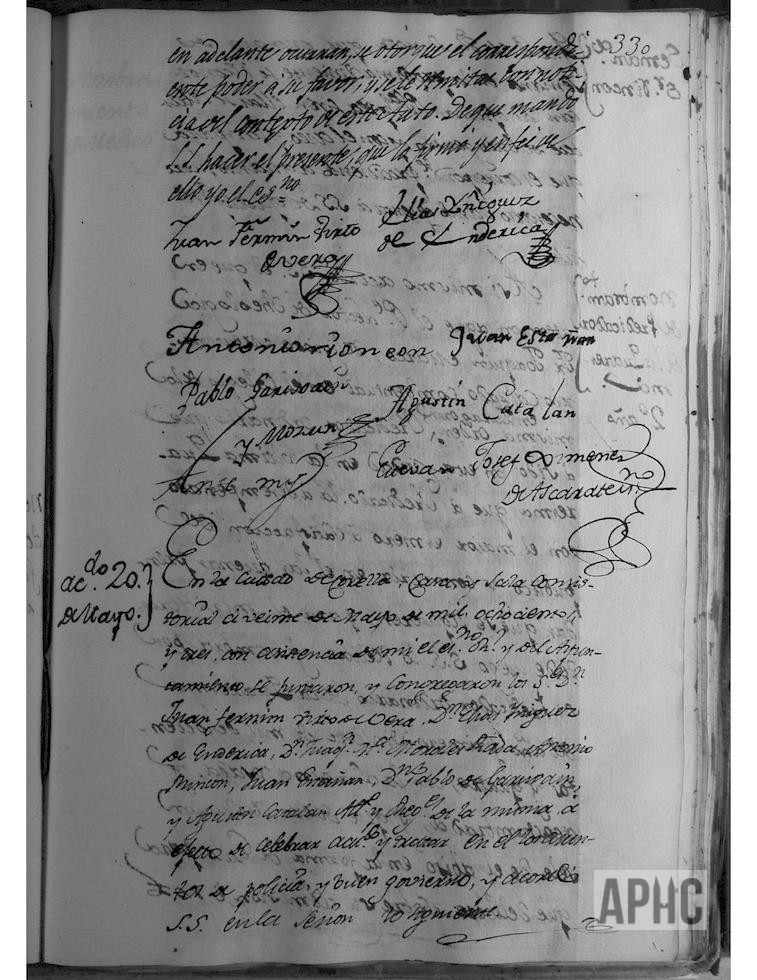 330
en adelante ocurran, se otorgue el correspondi-
ente poder a su favor, y se le remita con noti-
cia del contexto de este Auto. De que mando
S.S. hacer el presente, que la firmó y en fee de
ello yo el Ess.no
Juan Fermin Virto
de Vera
Elias Yñiguez
de Enderica
Antonio rincon
Juan Estañan
Pablo Garisoain
Agustin Catalan
y Moxun
Ante my
Cuevan
Josef Ximenez
de Ascarate
ac.do 20.
de Mayo.
En la Ciudad de Corella, Casa y Sala Consis-
torial a veinte de Mayo de mil ochocientos
y tres, con asistencia de mi el es.no R.l y del Ayun-
tamiento se juntaron, y Congregaron los S.res D.n
Juan fermin Virto de Vera, D.n Elias Yñiguez
de Enderica, D.n Juaq.n M.a Morales Rada, Antonio
Rincon, Juan Estañan, D.n Pablo de Garisoain,
y Agustin Catalan Alc.e y Reg.s de la misma a
efecto de celebrar acu.do y tratar en el
de policia, y buen govierno, y acordó
S.S. en la lo siguiente
APHC